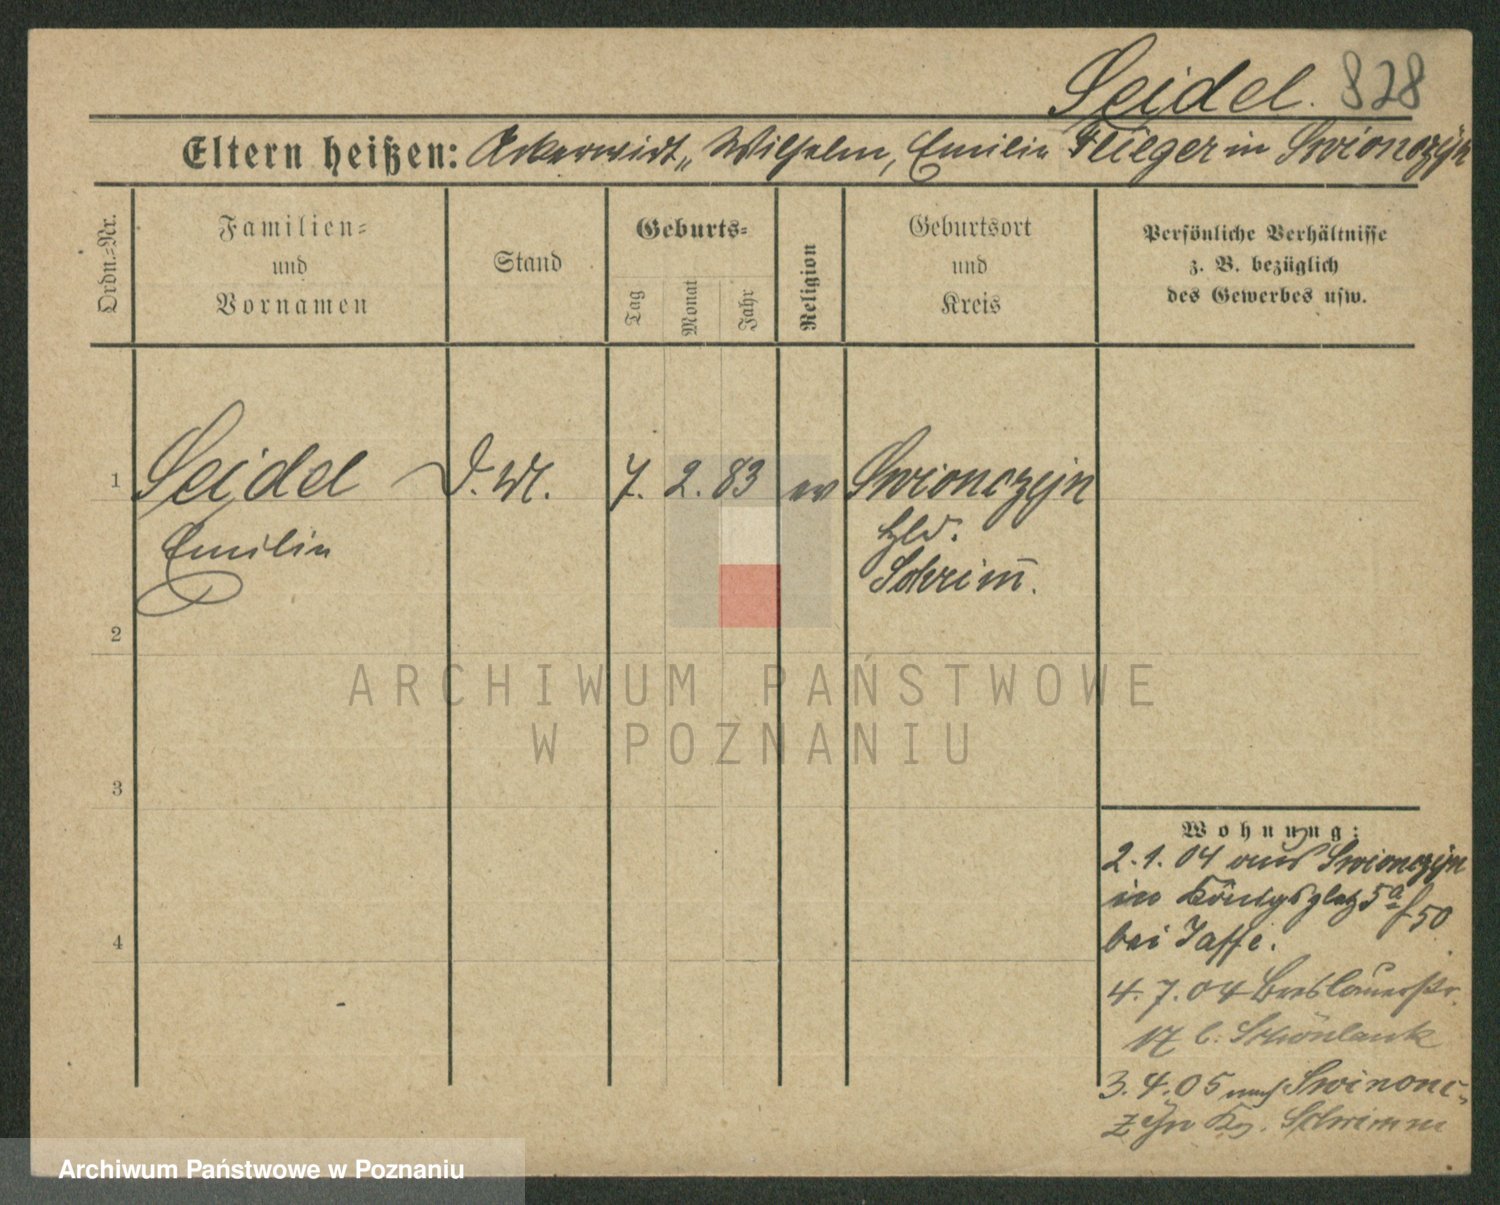 Seidel. 828
Eltern heißen: Ackerwirt Wilhelm, Emilie Flieger in Swionczyn
Ordn.-Nr.
Familien-
und
Vornamen
Stand
Geburts-
Tag
Monat
Jahr
Religion
Geburtsort
und
Kreis
Persönliche Verhältnisse
z. B. bezüglich
des Gewerbes usw.
1 Seidel D.M. 7. 2. 83 ev Swionczyn
Emilie
Schrim̅.
2
ARCHIWUM PAŃSTWOWE
W POZNANIU
3
Wohnung:
2.1.04 aus Swionczyn
in Königsplatz 5a f 50
bei Jaffe.
4
4.7.04 Breslauerstr.
17 b. Schönlank
3.4.05 nach Swinonc-
zyn Kr. Schrimm
Archiwum Państwowe w Poznaniu